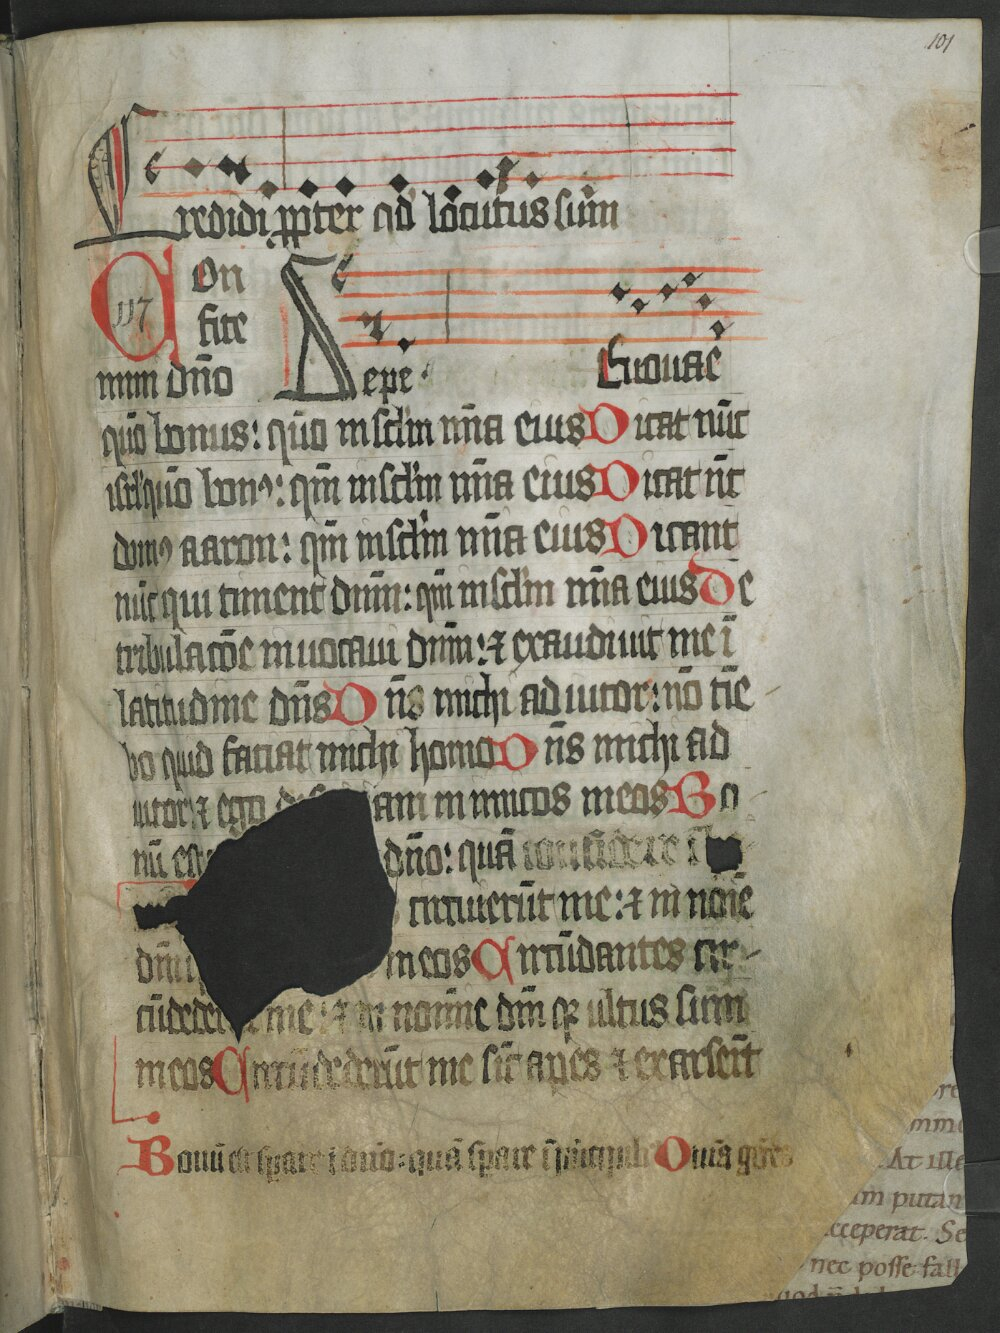 101
Credidi ꝓpter qd̛ locutus sum
Con
fite
117
mini dn̄o
Sepe
Euouae
qm̄o bonus: qm̄o in sc̄lm mīa eius Dicat nūc
isrl̄ qm̄o bonꝰ: qm̄ in sc̄lm mīa eius Dicat nc̄
domꝰ aaron: qm̄ in sc̄lm mīa eius Dicant
nūc qui timent dn̄m: qm̄ in sc̄lm mīa eius De
tribulacōe inuocaui dn̄m: ⁊ exaudiuit me ī
latitudine dn̄s Dn̄s michi adiutor: nō time
bo quid faciat michi homo Dn̄s michi ad
iutor ⁊ ego am inimicos meos Bo
nū dn̄o: quā confidere
circuierūt me: ⁊ in noīe
meos Circūdantes cir
cūdeder me: ⁊ in nomīe dn̄i qꝛ ultus sum
meos Circūdederūt me sic̄ apes ⁊ exarserūt
Bonū est spare ī dn̄o: quā spare ī prīcipibꝰ Om̄s gētes
At ille
putan
acceperat. Se
nec posse fall